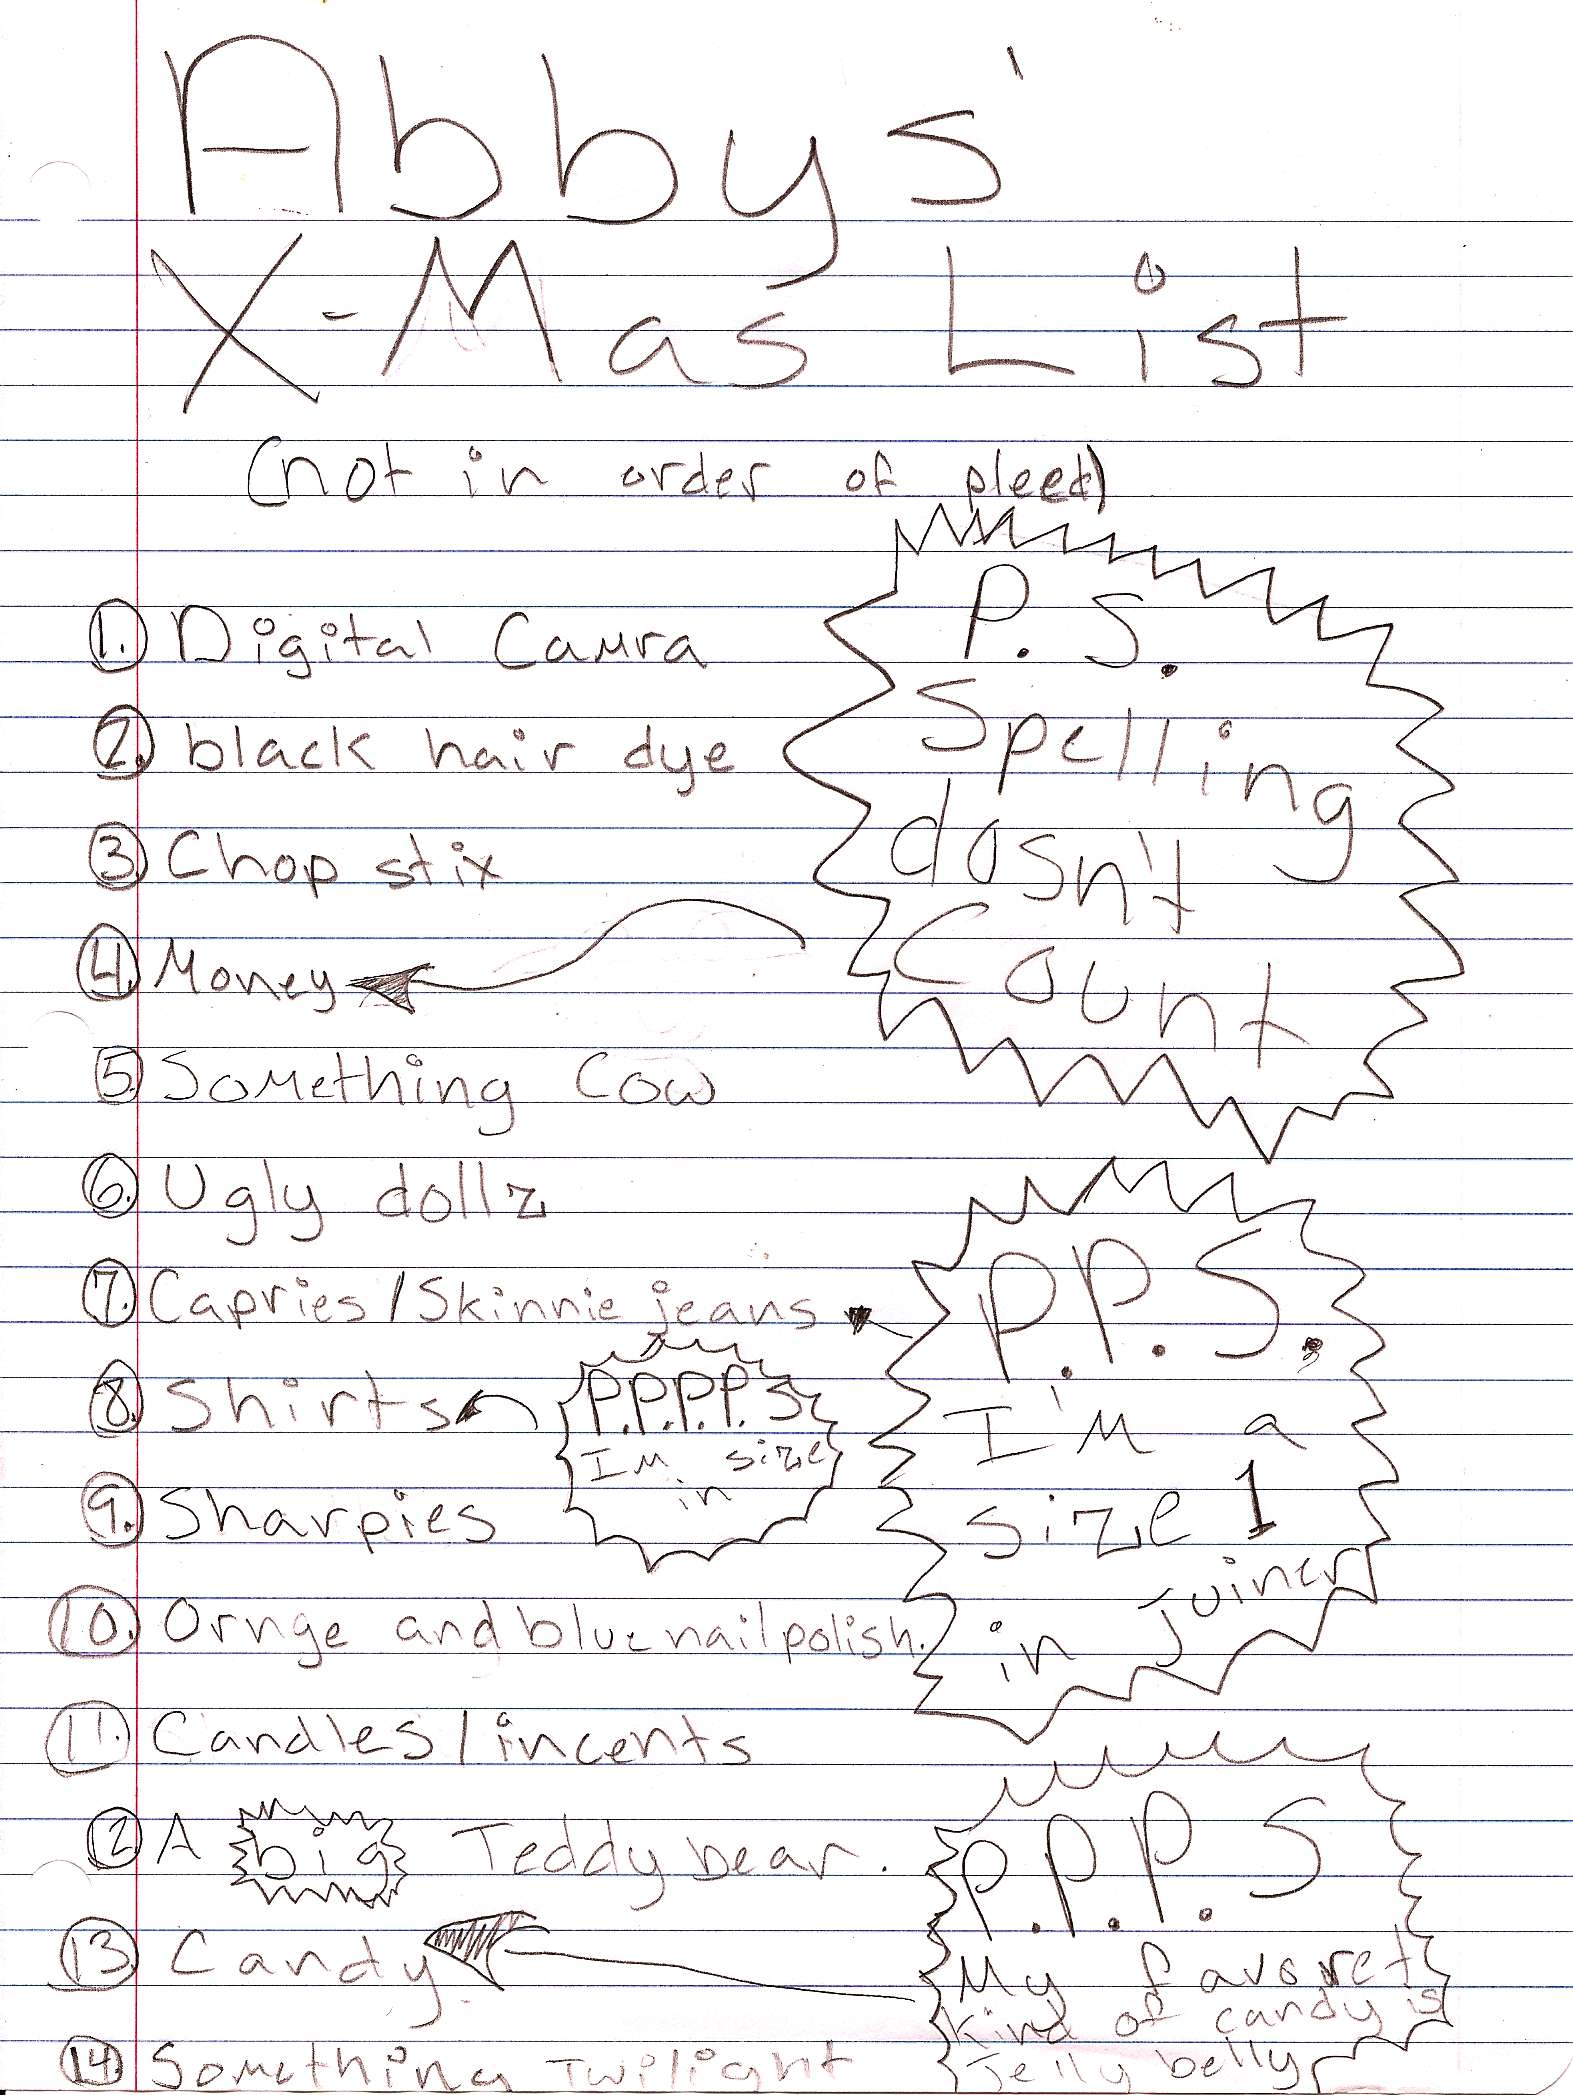 Abbys'
X-Mas List
(not in order of pleed)
1. Digital Camra
2. black hair dye
3 Chop stix
4. Money
P.S.
Spelling
dosn't
Count
5. Something Cow
6. Ugly dollz
7. Capries/Skinnie jeans
P.P.S.
I'm a
size 1
in juiner
8. Shirts
P.P.P.P.S
I'm size
in
9. Sharpies
10. Ornge and blue nail polish.
11. Candles/incents
12 A big Teddy bear.
13 Candy
P.P.P.S
My favoret
kind of candy is
Jelly belly
14 Something Twilight